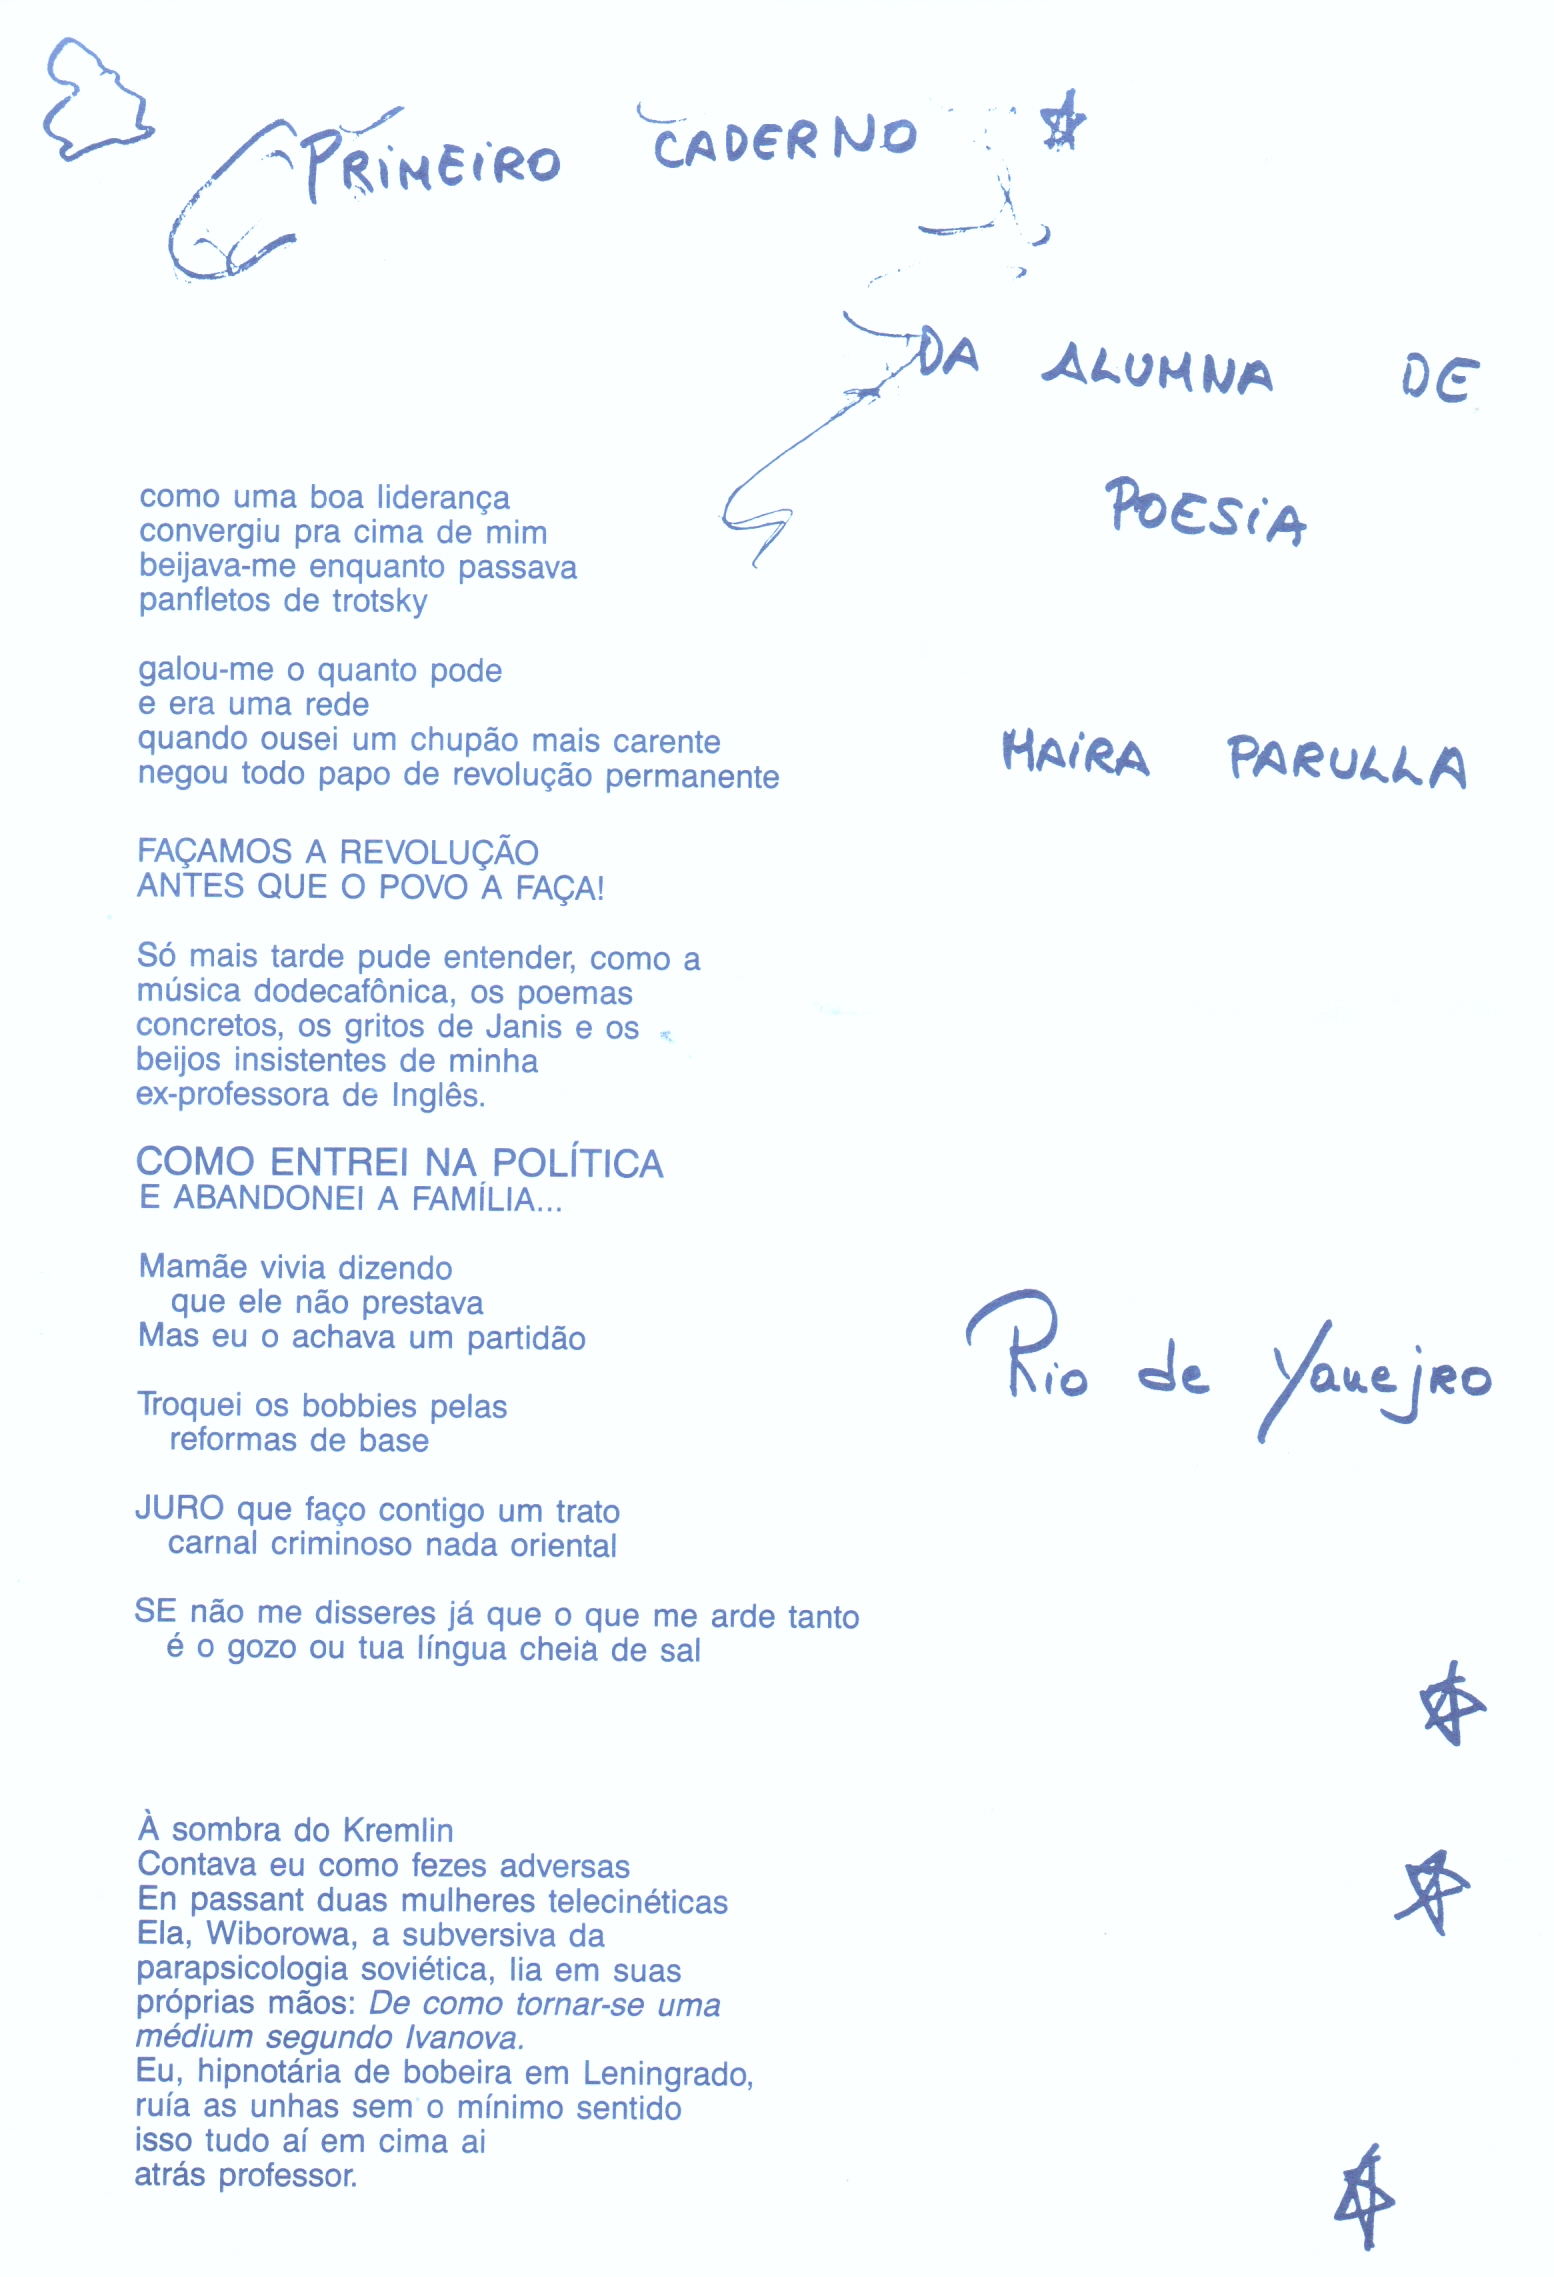 PRIMEIRO CADERNO
DA ALUMNA DE
POESIA
MAIRA PARULLA
Rio de Yanejro
como uma boa liderança
convergiu pra cima de mim
beijava-me enquanto passava
panfletos de trotsky
galou-me o quanto pode
e era uma rede
quando ousei um chupão mais carente
negou todo papo de revolução permanente
FAÇAMOS A REVOLUÇÃO
ANTES QUE O POVO A FAÇA!
Só mais tarde pude entender, como a
música dodecafônica, os poemas
concretos, os gritos de Janis e os
beijos insistentes de minha
ex-professora de Inglês.
COMO ENTREI NA POLÍTICA
E ABANDONEI A FAMÍLIA...
Mamãe vivia dizendo
que ele não prestava
Mas eu o achava um partidão
Troquei os bobbies pelas
reformas de base
JURO que faço contigo um trato
carnal criminoso nada oriental
SE não me disseres já que o que me arde tanto
é o gozo ou tua língua cheia de sal
À sombra do Kremlin
Contava eu como fezes adversas
En passant duas mulheres telecinéticas
Ela, Wiborowa, a subversiva da
parapsicologia soviética, lia em suas
próprias mãos: De como tornar-se uma
médium segundo Ivanova.
Eu, hipnotária de bobeira em Leningrado,
ruía as unhas sem o mínimo sentido
isso tudo aí em cima ai
atrás professor.